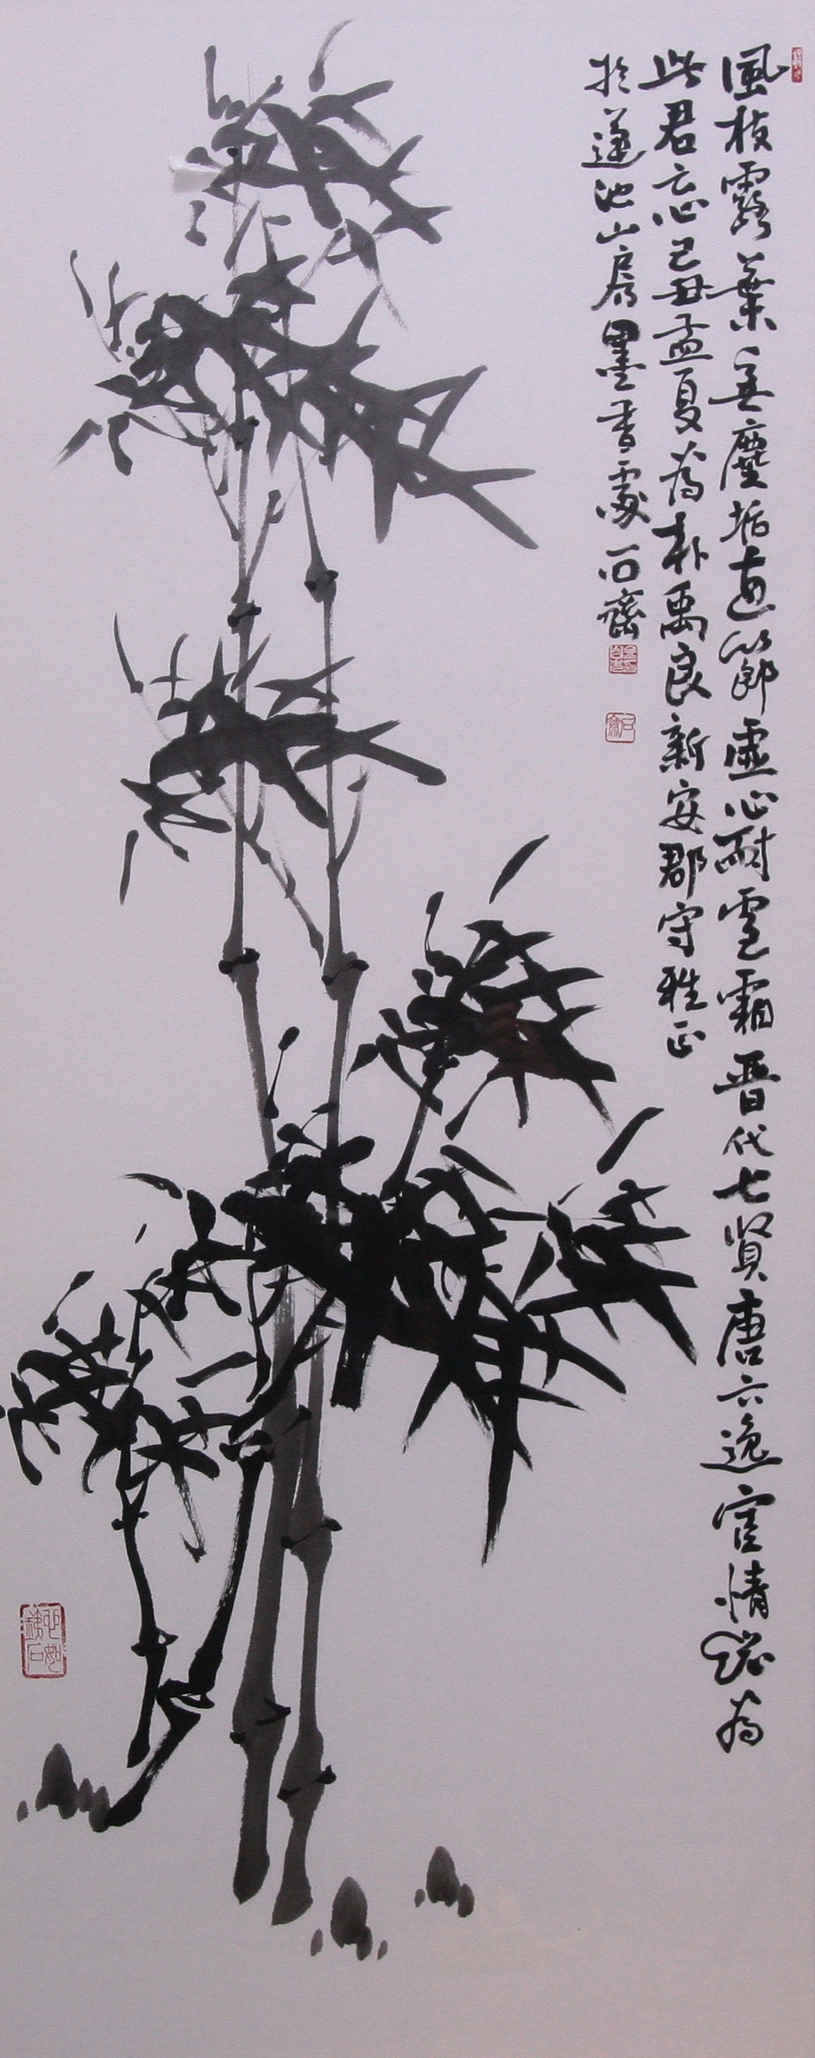 風枝露葉無塵垢直節虛心耐雪霜晋代七賢唐六逸宦情總為
此君忘己丑孟夏為朴禹良新安郡守雅正
於蓮池山房墨香處石齋